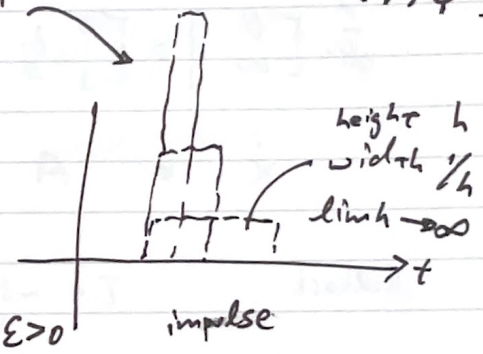 height h
width 1/h
lim h → ∞
t
ε>0
impulse